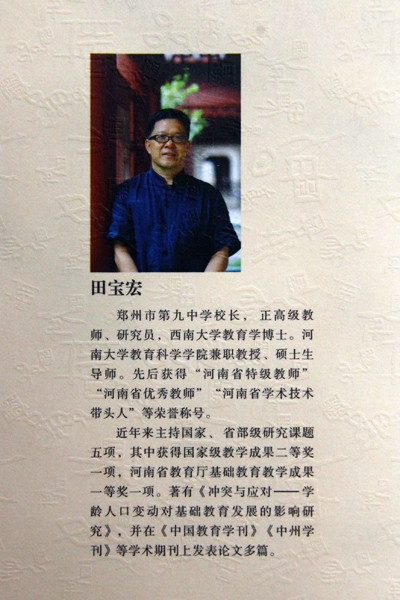 田宝宏
郑州市第九中学校长，正高级教
师、研究员，西南大学教育学博士。河
南大学教育科学学院兼职教授、硕士生
导师。先后获得“河南省特级教师”
“河南省优秀教师”“河南省学术技术
带头人”等荣誉称号。
近年来主持国家、省部级研究课题
五项，其中获得国家级教学成果二等奖
一项，河南省教育厅基础教育教学成果
一等奖一项。著有《冲突与应对——学
龄人口变动对基础教育发展的影响研
究》，并在《中国教育学刊》《中州学
刊》等学术期刊上发表论文多篇。